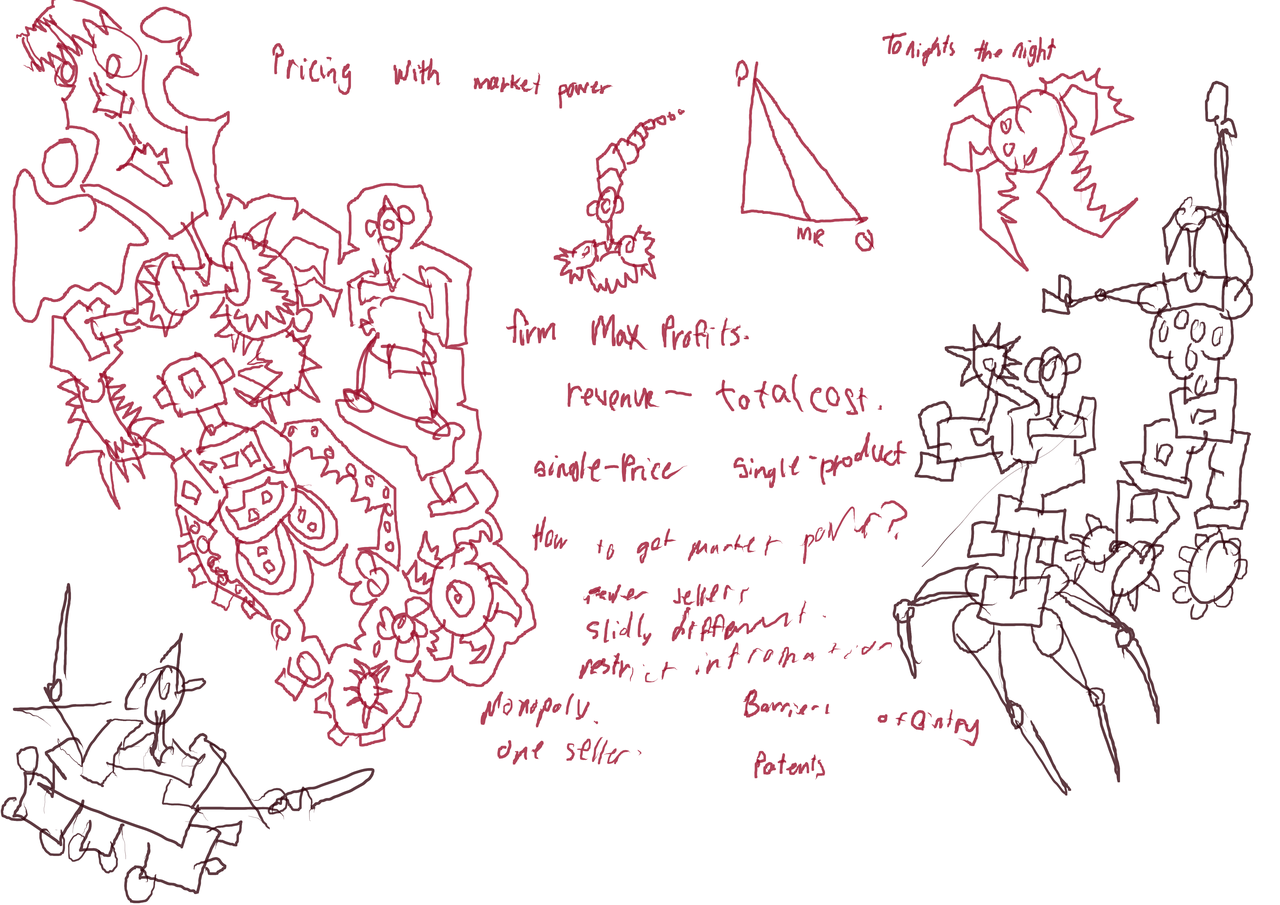 Pricing with market power
Tonights the night
P
MR
Q
firm Max Profits.
revenue - total cost.
single-Price single-product
How to get market power?
fewer sellers
slidly different.
restrict infromation
Monopoly.
one seller.
Barriers of Entry
Patents